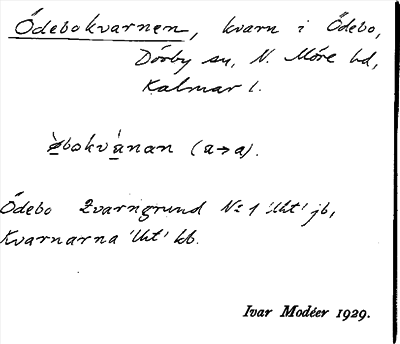 Ödebokvarnen, kvarn i Ödebo,
Dörby sn, N. Möre hd,
Kalmar l.
ø̀bokvánan (a→a).
Ödebo Qvarngrund No 1 'Uht' jb,
Kvarnarna 'Uht' kb.
Ivar Modéer 1929.